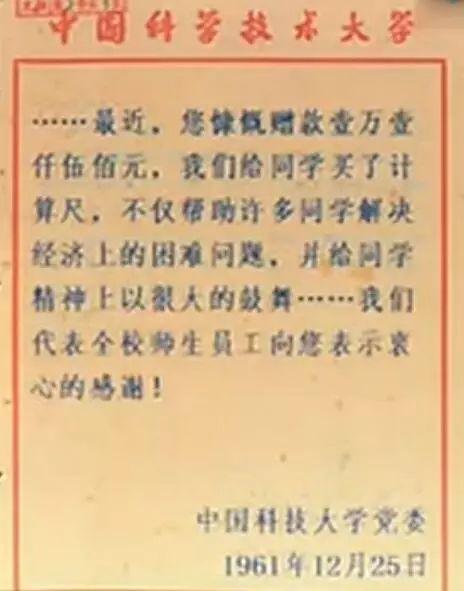 中国科学技术大学
……最近，您慷慨赠款壹万壹
仟伍佰元，我们给同学买了计
算尺，不仅帮助许多同学解决
经济上的困难问题，并给同学
精神上以很大的鼓舞……我们
代表全校师生员工向您表示衷
心的感谢！
中国科技大学党委
1961年12月25日